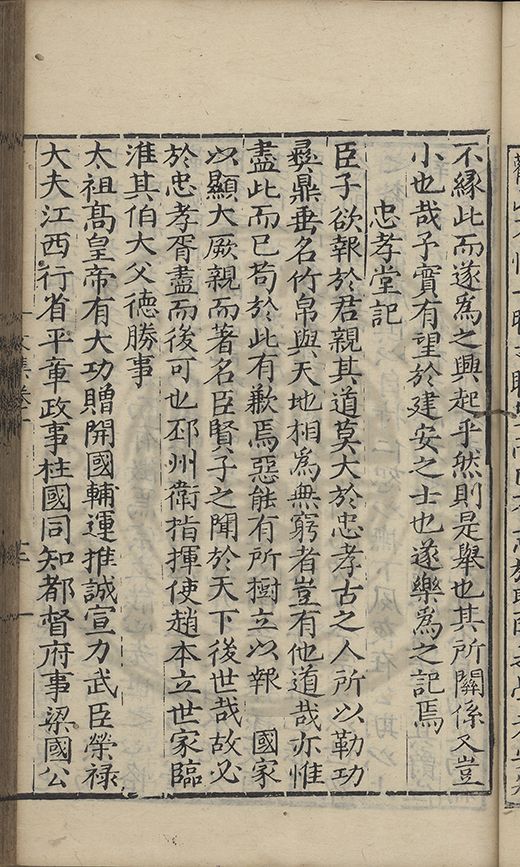 不縁此而遂爲之興起乎然則是舉也其所關係又豈
小也哉予實有望於建安之士也遂樂爲之記焉
忠孝堂記
臣子欲報於君親其道莫大於忠孝古之人所以勒功
彝鼎垂名竹帛與天地相爲無窮者豈有他道哉亦惟
盡此而已苟於此有歉焉惡能有所樹立以報 國家
以顯大厥親而著名臣賢子之聞於天下後世哉故必
於忠孝胥盡而後可也邳州衛指揮使趙本立世家臨
淮其伯大父德勝事
太祖高皇帝有大功贈開國輔運推誠宣力武臣榮禄
大夫江西行省平章政事柱國同知都督府事梁國公